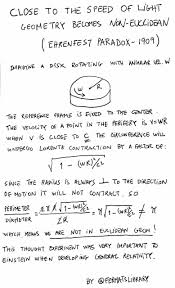 CLOSE TO THE SPEED OF LIGHT
GEOMETRY BECOMES NON-EUCLIDEAN
(EHRENFEST PARADOX - 1909)
IMAGINE A DISK ROTATING WITH ANGULAR VEL. W
W R
THE REFERENCE FRAME IS FIXED TO THE CENTER
THE VELOCITY OF A POINT IN THE PERIPHERY IS V=WR
WHEN V IS CLOSE TO C THE CIRCUMFERENCE WILL
UNDERGO LORENTZ CONTRACTION BY A FACTOR OF:
√1 - (WR)²/c²
SINCE THE RADIUS IS ALWAYS ⊥ TO THE DIRECTION
OF MOTION IT WILL NOT CONTRACT. SO
PERIMETER/DIAMETER = 2πR√1-(WR)²/c² / 2R = π√1-(WR)²/c² ≠ π
WHICH MEANS WE ARE NOT IN EUCLIDEAN GEOM!
THIS THOUGHT EXPERIMENT WAS VERY IMPORTANT TO
EINSTEIN WHEN DEVELOPING GENERAL RELATIVITY.
BY @FERMATSLIBRARY